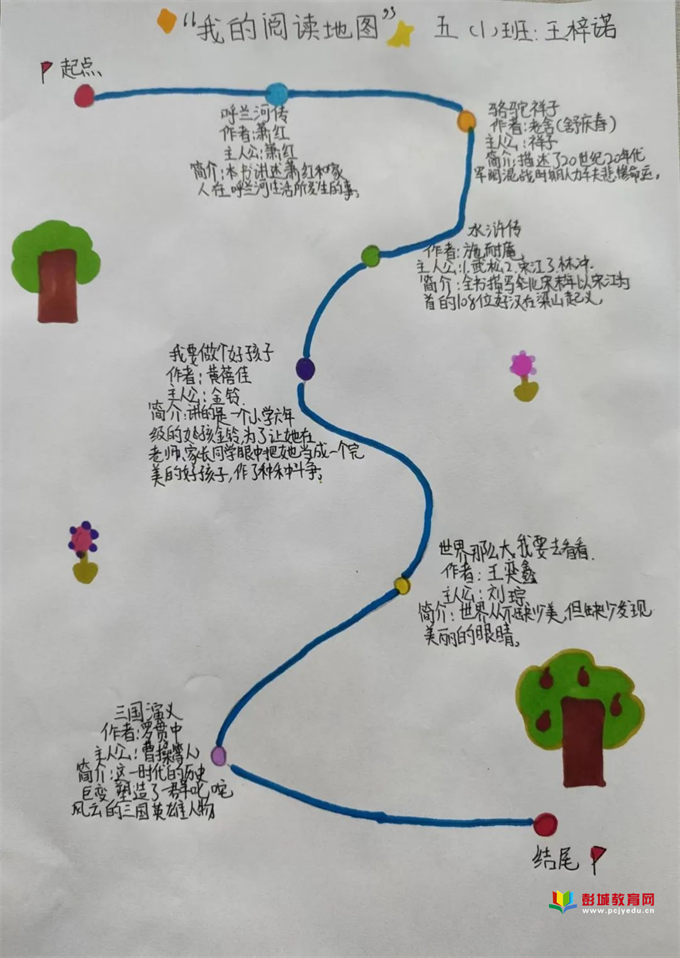 “我的阅读地图”
五(1)班:王梓诺
起点
呼兰河传
作者:萧红
主人公:萧红
简介:本书讲述萧红和家
人在呼兰河生活所发生的事。
骆驼祥子
作者:老舍(舒庆春)
主人公:祥子
简介:描述了20世纪20年代
军阀混战时期人力车夫悲惨命运。
水浒传
作者:施耐庵
主人公:1.武松2.宋江3.林冲.
简介:全书描写北宋末年以宋江为
首的108位好汉在梁山起义
我要做个好孩子
作者:黄蓓佳
主人公:金铃
简介:讲的是一个小学六年
级的女孩金铃,为了让她在
老师、家长同学眼中把她当成一个完
美的好孩子,作了种种斗争。
世界那么大,我要去看看.
作者:王奕鑫
主人公:刘琮
简介:世界从不缺少美,但缺少发现
美丽的眼睛。
三国演义
作者:罗贯中
主人公:曹操等人
简介:这一时代的历史
巨变塑造了一群叱咤
风云的三国英雄人物
结尾
彭城教育网
www.pcjyedu.cn